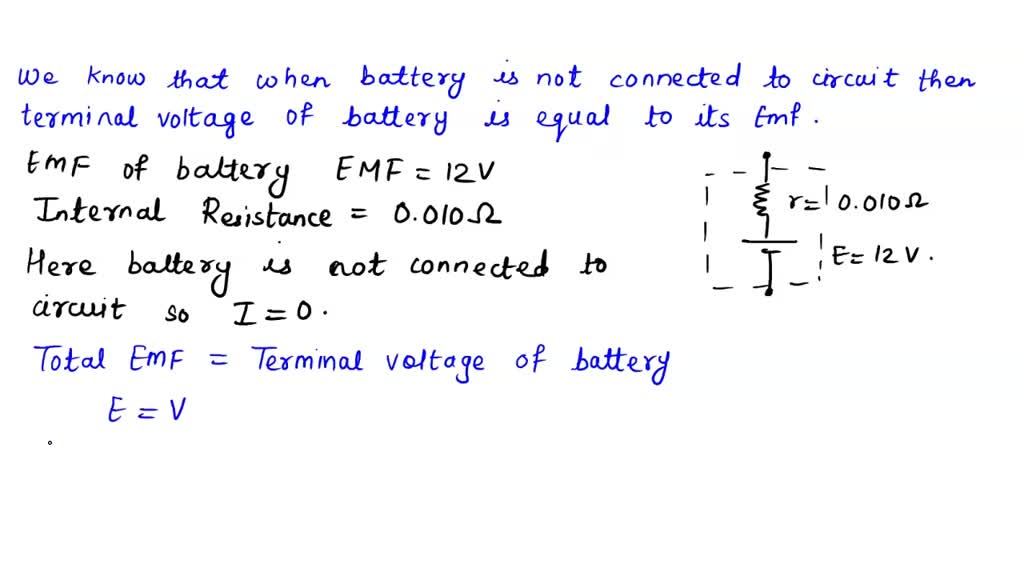 We know that when battery is not connected to circuit then
terminal voltage of battery is equal to its Emf.
EMF of battery EMF = 12V
Internal Resistance = 0.010Ω
r= 0.010Ω
E= 12 V.
Here battery is not connected to
circuit so I = 0.
Total EMF = Terminal voltage of battery
E = V